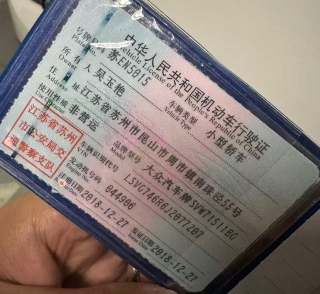 中华人民共和国机动车行驶证
Vehicle License of the People's Republic of China
号牌号码 苏EN5015 车辆类型 小型轿车
Plate No. Vehicle Type
所有人 吴玉艳
Owner
住址 江苏省苏州市昆山市周市镇南珠泾55号
Address
使用性质 非营运 品牌型号 大众汽车牌SVW71511BG
Model
江苏省苏州
市公安局交
通警察支队
车辆识别代号
发动机号码 044906
注册日期 2018-12-27 发证日期 2018-12-27